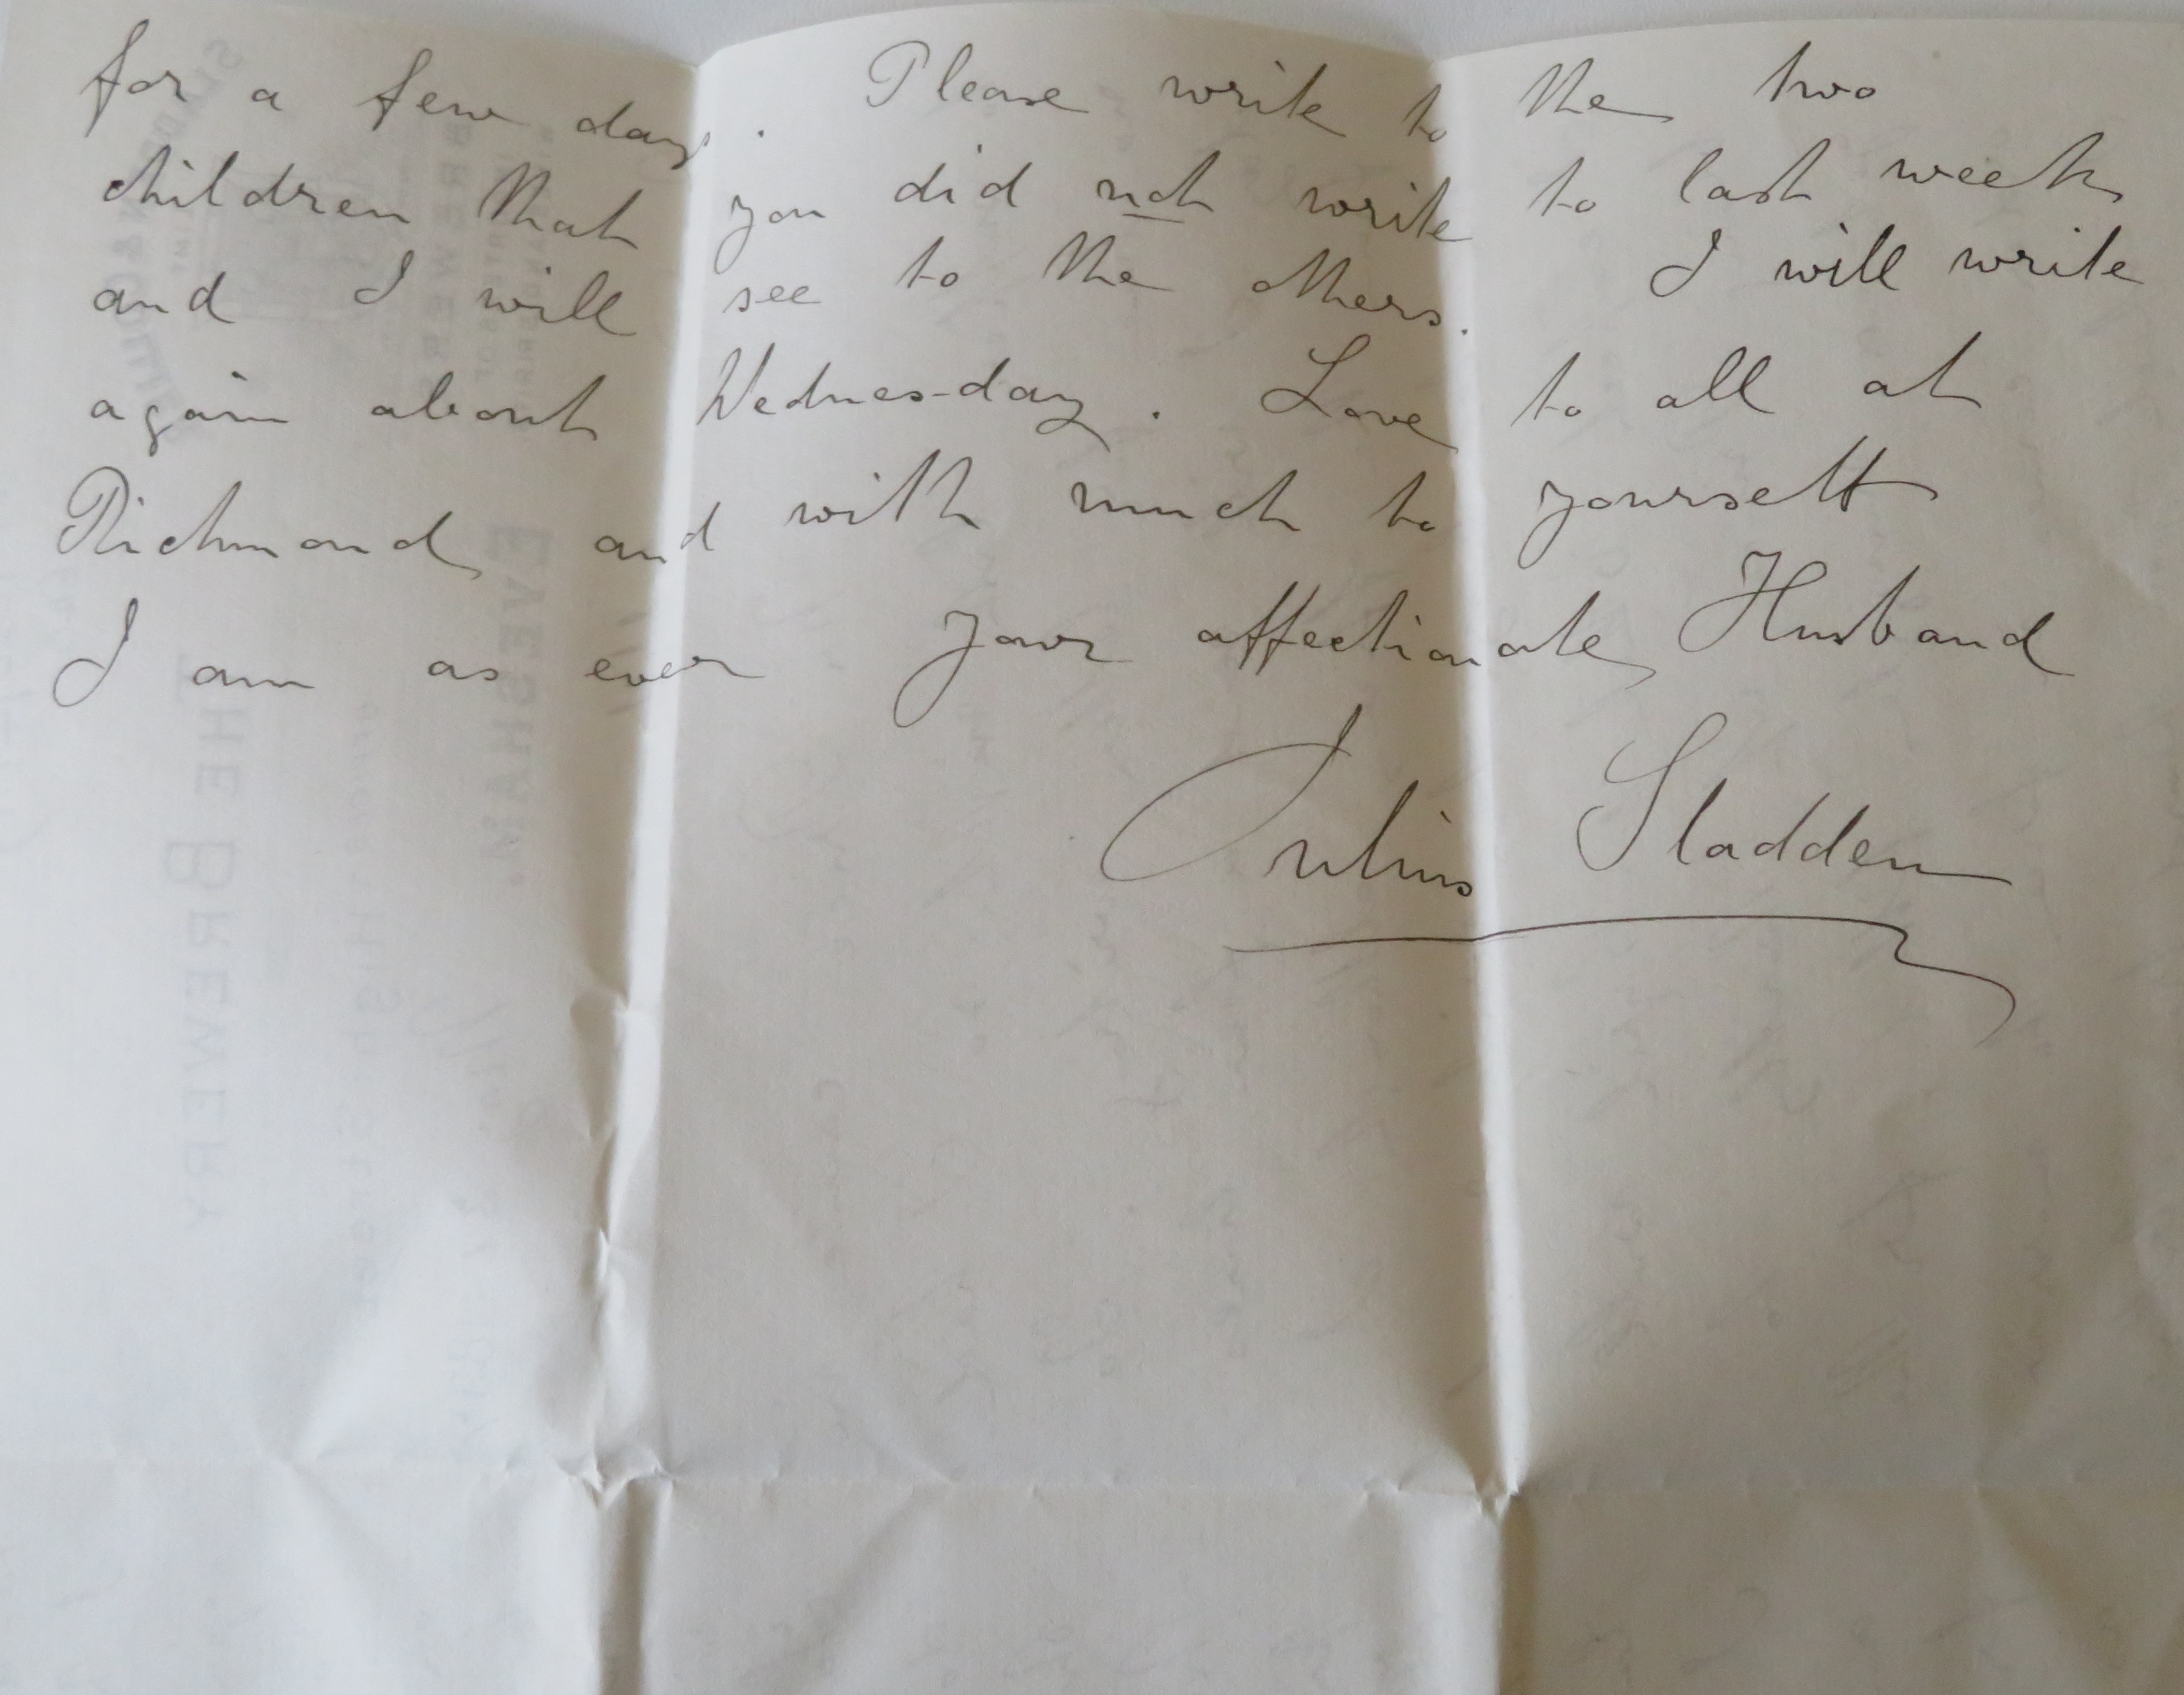 for a few days. Please write to the two
children that you did not write to last week
and I will see to the others. I will write
again about Wednes-day. Love to all at
Richmond and with much to yourself
I am as ever your affectionate Husband
Julius Sladden
THE BREWERY
EVESHAM.
BREWERS